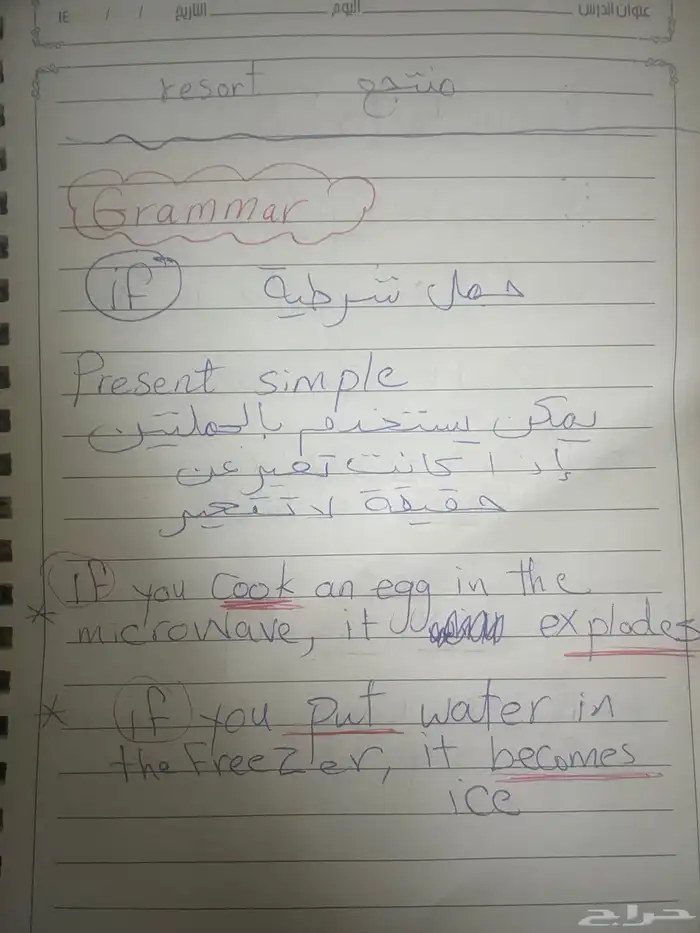 عنوان الدرس اليوم التاريخ / / ١٤
resort منتجع
Grammar
if جمل شرطية
Present simple
يمكن يستخدم بالجملتين
إذا كانت تعبر عن
حقيقة لا تتغير
If you cook an egg in the
* microwave, it explodes
* if you put water in
the Freezer, it becomes
ice
حراج